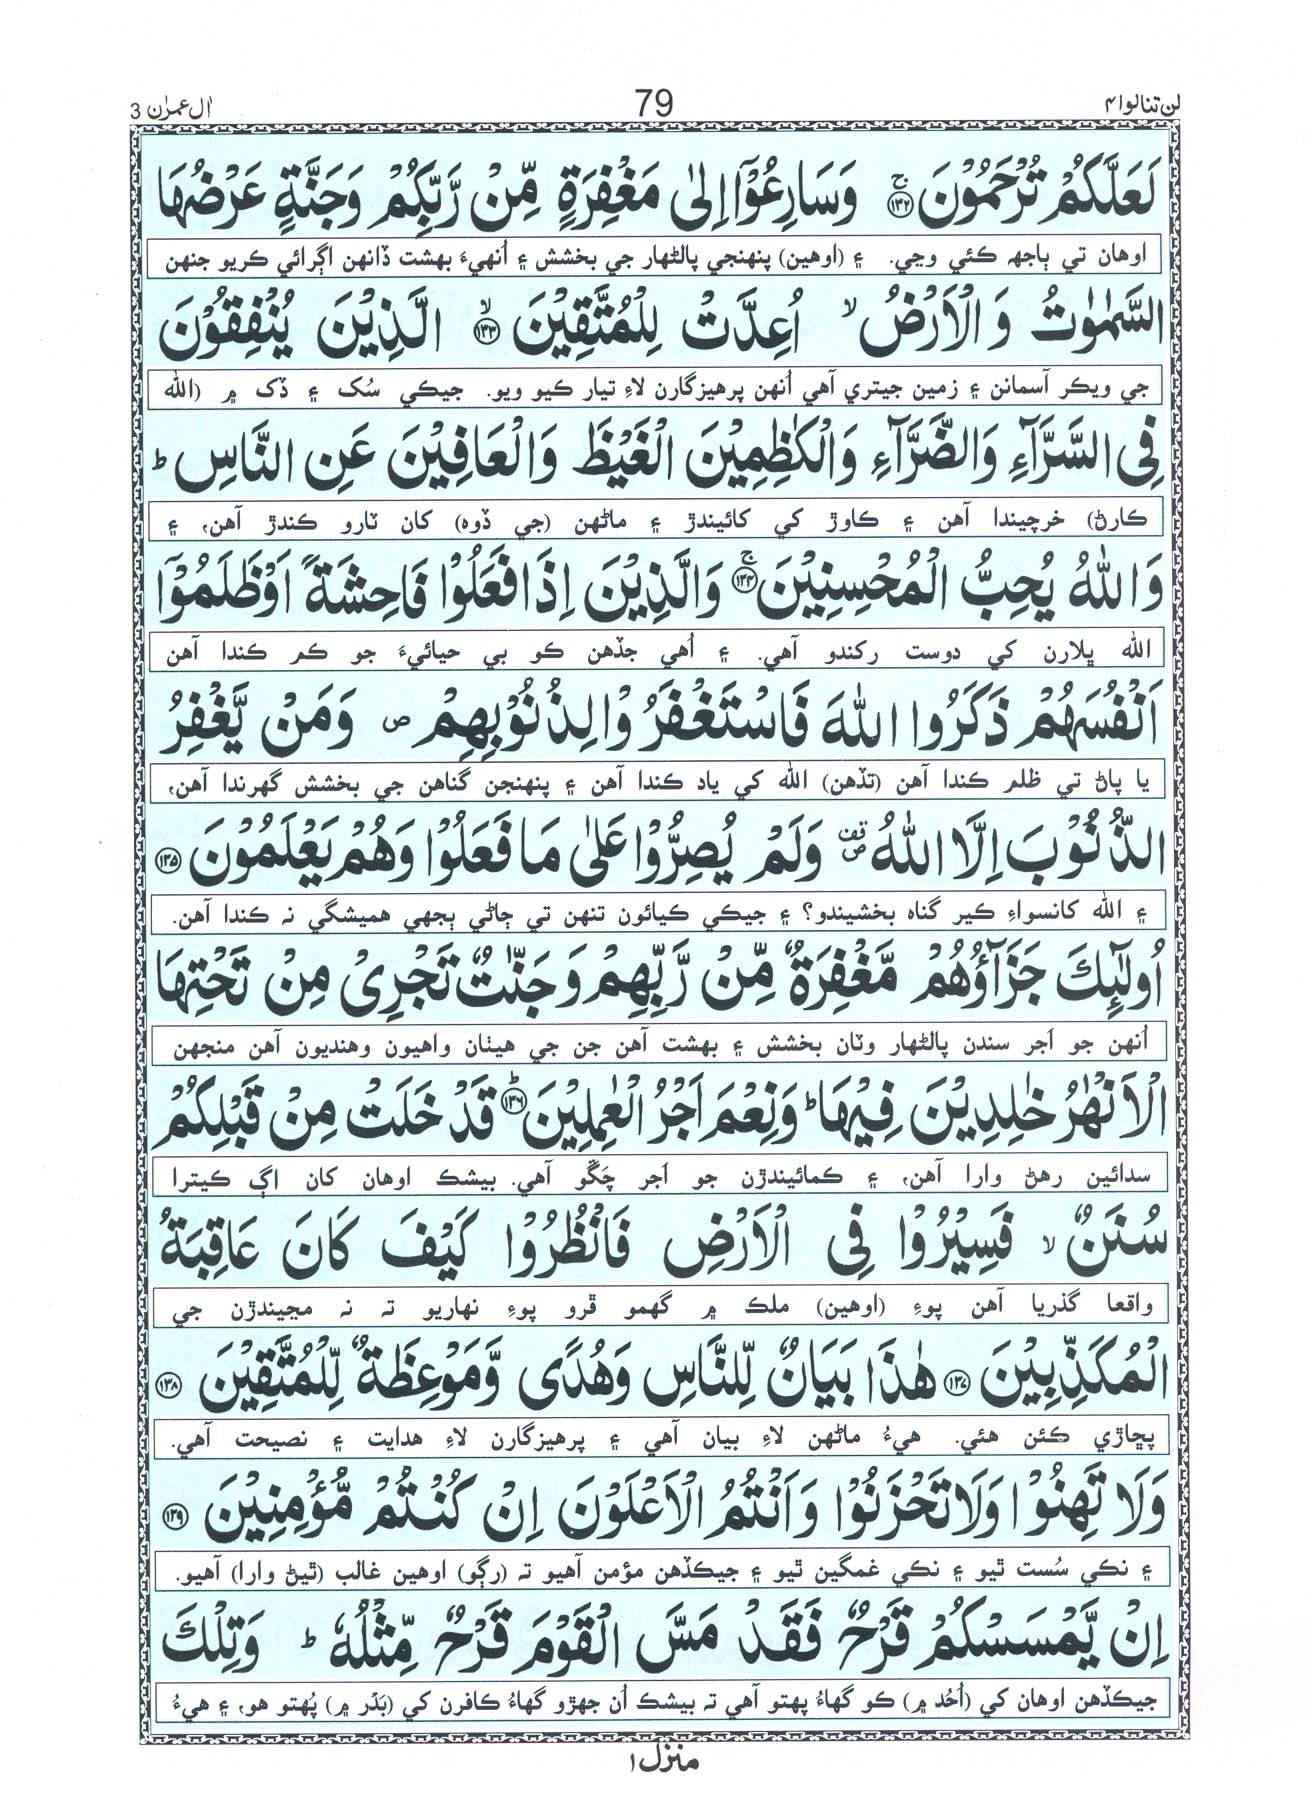 لن تنالوا ۴
79
اٰل عمرٰن 3
لَعَلَّكُمْ تُرْحَمُوْنَ ۚ﴿۱۳۲﴾ وَسَارِعُوْۤا اِلٰى مَغْفِرَةٍ مِّنْ رَّبِّكُمْ وَجَنَّةٍ عَرْضُهَا
اوهان تي ٻاجهه ڪئي وڃي. ۽ (اوهين) پنهنجي پالڻهار جي بخشش ۽ اُنهيءَ بهشت ڏانهن اڳرائي ڪريو جنهن
السَّمٰوٰتُ وَالْاَرْضُ ۙ اُعِدَّتْ لِلْمُتَّقِيْنَ ۙ﴿۱۳۳﴾ الَّذِيْنَ يُنْفِقُوْنَ
جي ويڪر آسمانن ۽ زمين جيتري آهي اُنهن پرهيزگارن لاءِ تيار ڪيو ويو. جيڪي سُک ۽ ڏک ۾ (الله
فِى السَّرَّآءِ وَالضَّرَّآءِ وَالْكٰظِمِيْنَ الْغَيْظَ وَالْعَافِيْنَ عَنِ النَّاسِ ؕ
ڪارڻ) خرچيندا آهن ۽ ڪاوڙ کي کائيندڙ ۽ ماڻهن (جي ڏوه) کان ٽارو ڪندڙ آهن، ۽
وَاللّٰهُ يُحِبُّ الْمُحْسِنِيْنَ ۚ﴿۱۳۴﴾ وَالَّذِيْنَ اِذَا فَعَلُوْا فَاحِشَةً اَوْ ظَلَمُوْۤا
الله ڀلارن کي دوست رکندو آهي. ۽ اُهي جڏهن ڪو بي حيائيءَ جو ڪم ڪندا آهن
اَنْفُسَهُمْ ذَكَرُوا اللّٰهَ فَاسْتَغْفَرُوْا لِذُنُوْبِهِمْ ۪ وَمَنْ يَّغْفِرُ
يا پاڻ تي ظلم ڪندا آهن (تڏهن) الله کي ياد ڪندا آهن ۽ پنهنجن گناهن جي بخشش گهرندا آهن،
الذُّنُوْبَ اِلَّا اللّٰهُ ۪۫ وَلَمْ يُصِرُّوْا عَلٰى مَا فَعَلُوْا وَهُمْ يَعْلَمُوْنَ ﴿۱۳۵﴾
۽ الله کانسواءِ ڪير گناه بخشيندو؟ ۽ جيڪي ڪيائون تنهن تي ڄاڻي ٻجهي هميشگي نہ ڪندا آهن.
اُولٰٓئِكَ جَزَآؤُهُمْ مَّغْفِرَةٌ مِّنْ رَّبِّهِمْ وَجَنّٰتٌ تَجْرِىْ مِنْ تَحْتِهَا
اُنهن جو اَجر سندن پالڻهار وٽان بخشش ۽ بهشت آهن جن جي هيٺان واهيون وهنديون آهن منجهن
الْاَنْهٰرُ خٰلِدِيْنَ فِيْهَا ؕ وَنِعْمَ اَجْرُ الْعٰمِلِيْنَ ؕ﴿۱۳۶﴾ قَدْ خَلَتْ مِنْ قَبْلِكُمْ
سدائين رهڻ وارا آهن، ۽ ڪمائيندڙن جو اَجر چڱو آهي. بيشڪ اوهان کان اڳ ڪيترا
سُنَنٌ ۙ فَسِيْرُوْا فِى الْاَرْضِ فَانْظُرُوْا كَيْفَ كَانَ عَاقِبَةُ
واقعا گذريا آهن پوءِ (اوهين) ملڪ ۾ گهمو ڦرو پوءِ نهاريو تہ نہ مڃيندڙن جي
الْمُكَذِّبِيْنَ ﴿۱۳۷﴾ هٰذَا بَيَانٌ لِّلنَّاسِ وَهُدًى وَّمَوْعِظَةٌ لِّلْمُتَّقِيْنَ ﴿۱۳۸﴾
پڇاڙي ڪئن هئي. هيءُ ماڻهن لاءِ بيان آهي ۽ پرهيزگارن لاءِ هدايت ۽ نصيحت آهي.
وَلَا تَهِنُوْا وَلَا تَحْزَنُوْا وَاَنْتُمُ الْاَعْلَوْنَ اِنْ كُنْتُمْ مُّؤْمِنِيْنَ ﴿۱۳۹﴾
۽ نڪي سُست ٿيو ۽ نڪي غمگين ٿيو ۽ جيڪڏهن مؤمن آهيو تہ (رڳو) اوهين غالب (ٿيڻ وارا) آهيو.
اِنْ يَّمْسَسْكُمْ قَرْحٌ فَقَدْ مَسَّ الْقَوْمَ قَرْحٌ مِّثْلُهٗ ؕ وَتِلْكَ
جيڪڏهن اوهان کي (اُحُد ۾) ڪو گهاءُ پهتو آهي تہ بيشڪ اُن جهڙو گهاءُ ڪافرن کي (بَدْر ۾) پُهتو هو، ۽ هيءُ
منزل ۱